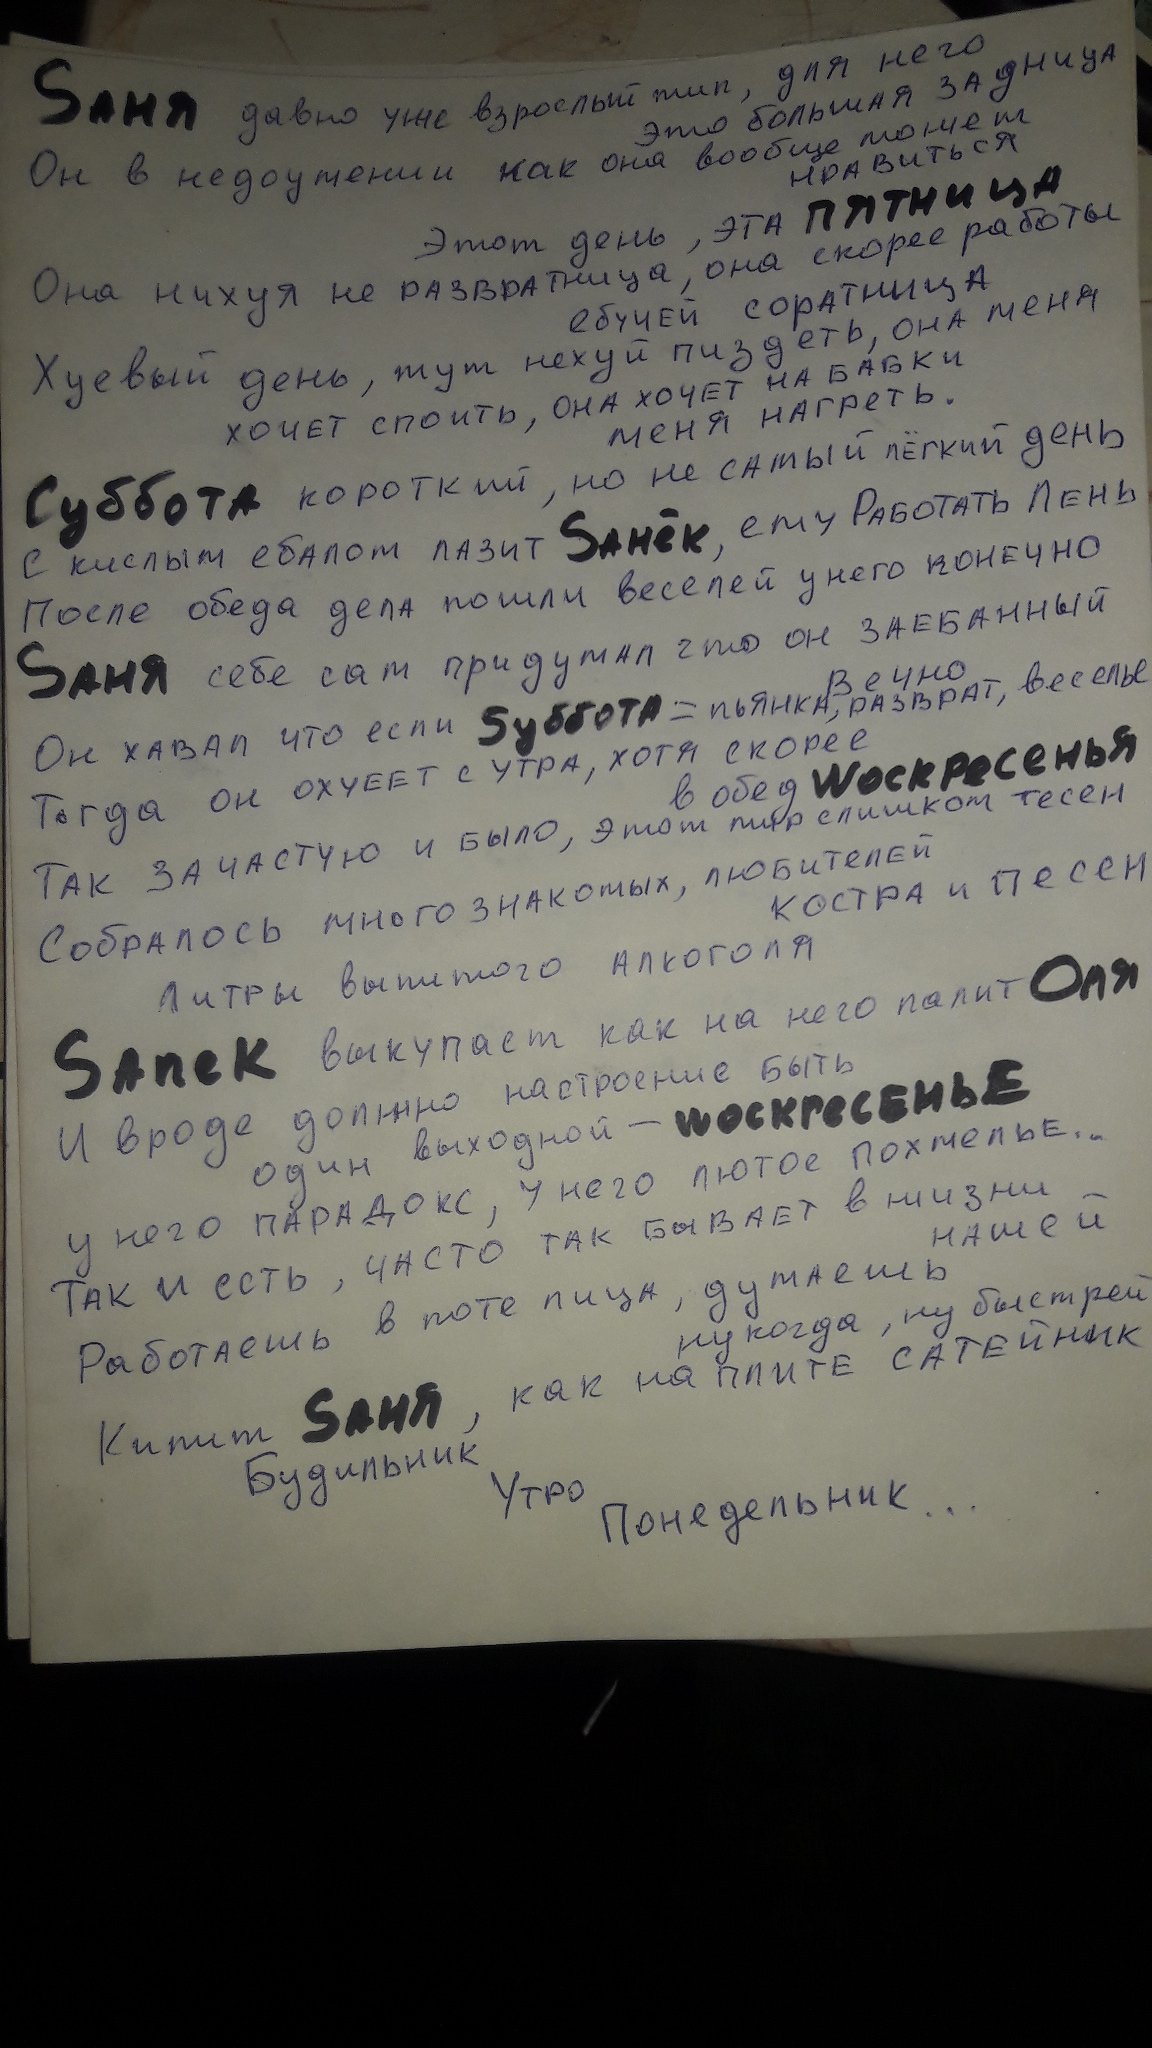 Sаня давно уже взрослый тип, для него
это большая задница
Он в недоумении как она вообще может
нравиться
Этот день, эта ПЯТНИЦА
Она нихуя не развратница, она скорее работы
ебучей соратница
Хуевый день, тут нехуй пиздеть, она меня
хочет споить, она хочет на бабки
меня нагреть.
Суббота короткий, но не самый лёгкий день
С кислым ебалом лазит Sанёк, ему работать лень
После обеда дела пошли веселей у него конечно
Sаня себе сам придумал что он заебанный
вечно
Он хавал что если Sуббота = пьянка, разврат, веселье
Тогда он охуеет с утра, хотя скорее
в обед Wоскресенья
Так зачастую и было, этот мир слишком тесен
Собралось много знакомых, любителей
костра и песен
Литры выпитого алкоголя
Sапек выкупает как на него палит Оля
И вроде должно настроение быть
один выходной – Wоскресенье
у него парадокс, у него лютое похмелье...
Так и есть, часто так бывает в жизни
нашей
Работаешь в поте лица, думаешь
ну когда, ну быстрей
Кипит Sаня, как на плите сатейник
Будильник
Утро
Понедельник...